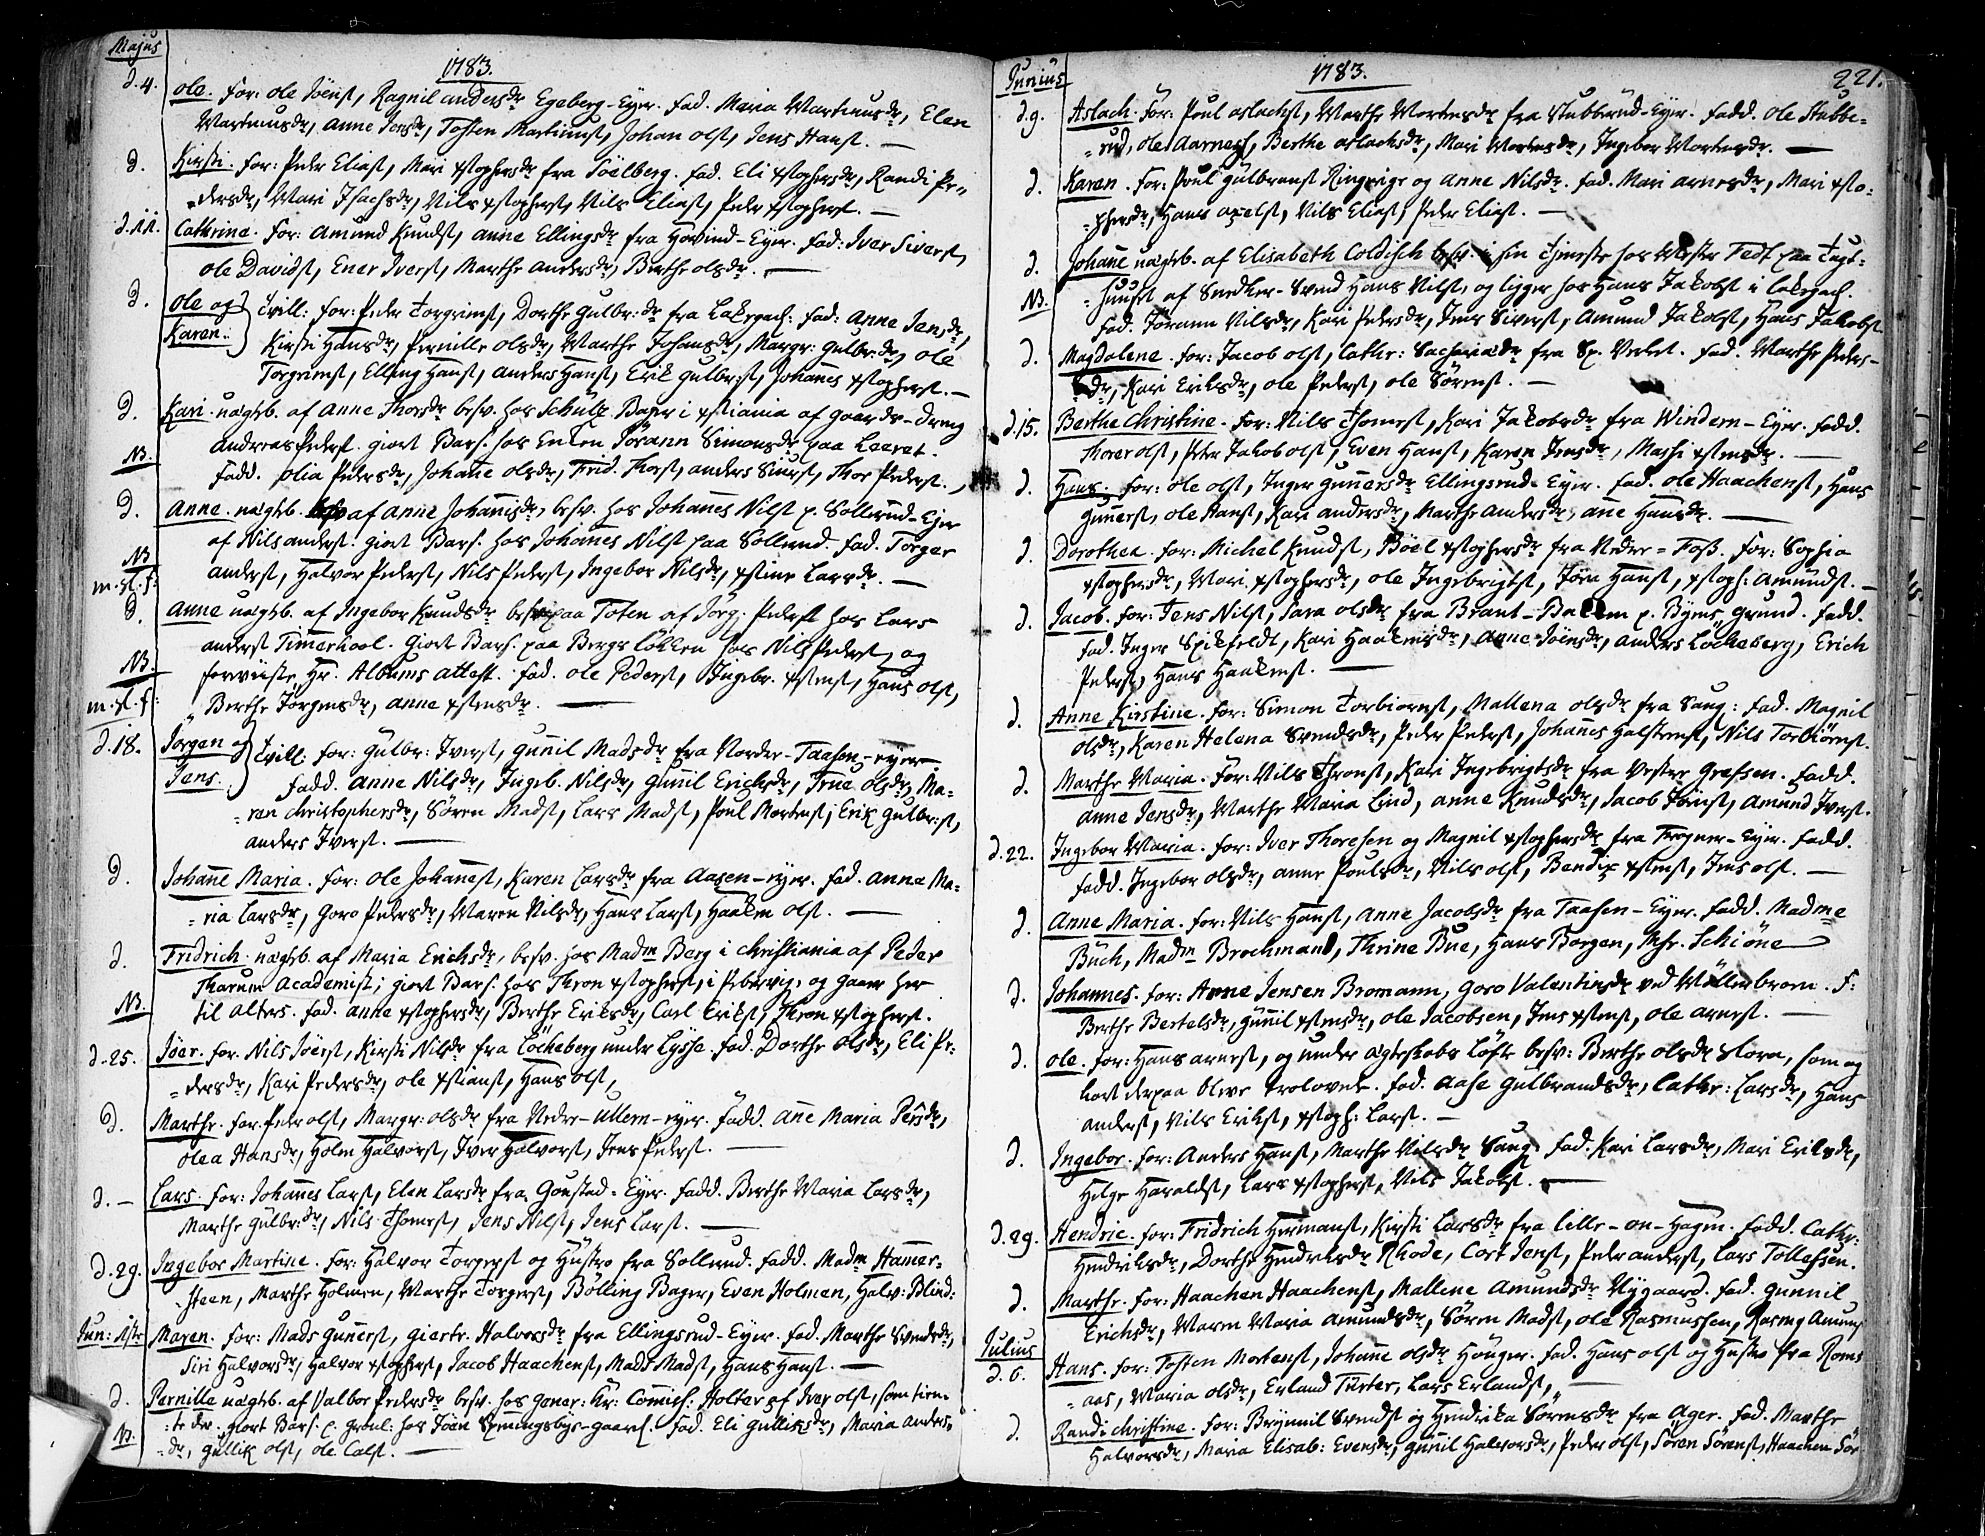 Majus
1783.
d. 4. Ole. For: Ole Iöenst, Ragnil andersdr Egeberg-Eyer. Fad. Maria Martinusdr, Elen
Martinusdr, Anne Jensdr, Tosten Martinust, Johan olst, Jens Hanst. —
d. Kirsti. For: Peder Eliast, Mari Xstophersdr fra Söelberg. Fad. Eli Xstophersdr, Randi Pe-
dersdr, Mari Isachsdr, Nils Xstopherst, Nils Eliast, Peder Xstopherst. —
d. 11. Cathrine. For: Amund Knudst, Anne Ellingsdr fra Hovind-Eyer. Fad: Iver Siverst,
Ole Davidst, Ener Iverst, Marthe Andersdr, Berthe olsdr. —
d. Ole og Tvill: For: Peder Torgrimst, Dorthe Gulbr:dr fra Lakegad: Fad: Anne Jensdr,
Karen. Kirsti Hansdr, Pernille olsdr, Marthe Johansdr, Margr: Gulbr:dr, Ole
Torgrimst, Elling Hanst, Anders Hanst, Erik Gulbr:st, Johanes Xstopherst. —
d. Kari. uægtb. af Anne Thorsdr besv. hos Schültz Bager i Xstiania af gaards-dreng
NB. Andreas Pederst. giort Bars. hos Enken Jörann Simonsdr paa Leeret.
Fadd. Olia Pedersdr, Johanne olsdr, Frid. Thorst, Anders Siurst, Thor Pederst.
d. Anne. uægtb. af Anne Johanisdr, besv. hos Johanes Nilst p. Sollerud-Eyer
NB af Nils anderst. giort Bars. hos Johanes Nilst paa Sollerud. Fad. Torger
m. sl. f: anderst, Halvor Pederst, Nils Pederst, Ingebor Nilsdr, Xstine Larsdr. —
d. Anne uægtb. af Ingebor Knudsdr besv. paa Toten af Jörg. Pederst hos Lars
anderst Timerhool. Giort Bars. paa Bergs Lökken hos Nils Pederst, og
NB. forviiste Hr. Albums attest. Fad. Ole Pederst, Ingebr. Xstenst, Hans olst,
m. sl. f: Berthe Jorgensdr, Anne Xstensdr. —
d. 18. Jorgen og Tvill: For: Gulbr: Iverst, Gunil Madsdr fra Nordre-Taasen-eyer.
Jens. Fadd. Anne Nilsdr, Ingeb. Nilsdr, Gunil Erichsdr, True olsdr, Ma-
ren Christophersdr, Sören Madst, Lars Madst, Poul Mortenst, Erik Gulbr:st,
anders Iverst. —
d. Johane Maria. For: Ole Johanest, Karen Larsdr fra Aasen-eyer. Fad. Anna Ma-
ria Larsdr, Goro Pedersdr, Maren Nilsdr, Hans Larst, Haaken olst. —
d. Fridrich uægtb. af Maria Erichsdr, besv. hos Madm Berg i Christiania af Peder
Tharum Academist; giort Bars. hos Thron Xstopherst, i Pebervig, og gaaer her
NB. til alters. Fad. Anne Xstophersdr, Berthe Eriksdr, Carl Erikst, Thron Xstopherst.
d. 25. Iöer. For. Nils Iöerst, Kirsti Nilsdr fra Löcheberg under Lysse. Fad. Dorthe olsdr, Eli Pe-
dersdr, Kari Pedersdr, Ole Xstianst, Hans olst,
d. Marthe. For. Peder olst, Margr. olsdr fra Nedre-Ullern-eyer. Fadd. Ane Maria Persdr,
Olea Hansdr, Holm Halvorst, Iver Halvorst, Jens Pederst. —
d. — Lars. For: Johanes Larst, Elen Larsdr fra Gousted-Eyer. Fadd. Berthe Maria Larsdr,
Marthe Gulbr:dr, Nils Thomest, Jens Nilst, Jens Larst. —
d. 29. Ingebor Martine. For: Halvor Torgerst og Hustro fra Sollerud. Fadd. Madm Hamer-
steen, Marthe Holmen, Marthe Torgerst, Bölling Bager, Even Holmen, Halv: Blind:
Jun: 1ste Maren. For: Mads Gunerst, Giertr. Halvorsdr fra Ellingsrud-Eyer. Fad. Marthe Svendsdr,
Siri Halvorsdr, Halvor Xstopherst, Jacob Haachenst, Mads Madst, Hans Hanst. —
d. Pernille uægtb. af Valbor Pedersdr besv. hos Gener: Kr: Comiss: Holter af Iver olst, som tien-
NB. te der. giort Bars. p. Grönl: hos Jöen -gaard. Fad. Eli Gulliksdr, Maria Anders-
dr, Gullik olst, Ole Calst. —

Junius
1783.
221.
d. 9. Aslach. For: Poul Aslachst, Marthe Mortensdr fra Stubberud-Eyer. Fadd. Ole Stubbe-
rud, Ole Aarnest, Berthe Aslachsdr, Mari Mortensdr, Ingebor Mortensdr. —
d. Karen. For: Poul Gulbranst Ringerige og Anne Nilsdr. Fad. Mari Arnesdr, Mari Xsto-
phersdr, Hans Axelst, Nils Eliast, Peder Eliast. —
d. Johane uægtb. af Elisabeth Coldisch besv. i sin tjeneste hos Mester Fedt paa Tugt-
NB. huuset af Snedker-Svend Hans Nilst, og ligger hos Hans Jakobst i Lakegad.
Fad. Jörann Nilsdr, Kari Pedersdr, Jens Siverst, Amund Jakobst, Hans Jakobst
d. Magdalene. For: Jacob olst, Cathr: Sachariædr fra Sp. Verket. Fad. Marthe Peders-
dr, Kari Eriksdr, Ole Pederst, Ole Sörenst. —
d. 15. Berthe Christine. For: Nils Thomest, Kari Jakobsdr fra Windern-Eyer. Fadd.
Thorer olst, Peter Jakob olst, Even Hanst, Karen Jensdr, Marthe Xstensdr. —
d. Hans. For: Ole olst, Inger Gunersdr Ellingsrud-Eyer. Fad. Ole Haachenst, Hans
Gunerst, Ole Hanst, Kari Andersdr, Marthe Andersdr, Ane Hansdr. —
d. Dorothea. For: Michel Knudst, Böel Xstophersdr fra Nedre-Foss. For: Sophia
Xstophersdr, Mari Xstophersdr, Ole Ingebrigtst, Jöen Hanst, Xstoph: Amundst. —
d. Jacob. For: Jens Nilst, Sara olsdr fra Brant-Bakken p. Byens grund. Fadd.
Fad. Inger Spikfeldt, Kari Haakensdr, Anne Jöensdr, Anders Löckeberg, Erich
Pederst, Hans Haakenst. —
d. Anne Kirstine. For: Simon Torbiörnst, Mallena olsdr fra Saug: Fad. Magnil
olsdr, Karen Helena Svendsdr, Peder Pederst, Johanes Halstenst, Nils Torbiörnst.
d. Marthe Maria. For: Nils Thronst, Kari Ingebrigtsdr fra Vestre Grefsen. Fadd.
Anne Jensdr, Marthe Maria Lind, Anne Knudsdr, Jacob Jörist, Amund Iverst.
d. 22. Ingebor Maria. For: Iver Thoresen og Magnil Xstophersdr fra Frogner-Eyer. Fadd.
Fadd. Ingebor olsdr, Anne Poulsdr, Nils olst, Bendix Xstenst, Jens olst. —
d. Anne Maria. For: Nils Hanst, Anne Jacobsdr fra Taasen-Eyer. Fadd. Madme
Büch, Madm Brochmand, Thrine Bue, Hans Borgen, Mr. Schiöne
d. Johannes. For: Arne Jensen Bromann, Goro Valentinsdr ved Möllerbroen. F:
Berthe Bertelsdr, Gunil Xstensdr, Ole Jacobsen, Jens Xstenst, Ole Arnest. —
d. Ole. For: Hans Arnest, og under ægteskabs Löfte besv: Berthe olsdr Flora, som og
kort derpaa bleve trolovede. Fad. Aase Gulbrandsdr, Cathr: Larsdr, Hans
anderst, Nils Erikst, Xstoph: Larst. —
d. Ingebor. For: Anders Hanst, Marthe Nilsdr Saug. Fad: Kari Larsdr, Mari Eriksdr,
Helge Haraldst, Lars Xstopherst, Nils Jakobst. —
d. 29. Hendric. For: Fridrich Hermanst, Kirsti Larsdr fra Lille-on-Hagen. Fadd. Cathr:
Hendriksdr, Dorthe Hendriksdr Rhode, Cort Jenst, Peder anderst, Lars Tollefsen.
d. Marthe. For: Haachen Haachenst, Mallene Amundsdr Nygaard. Fad. Gunnil
Erichsdr, Maren Maria Amundsdr, Sören Madst, Ole Rasmussen, Rasmus Amunst
Julius
d. 6. Hans. For: Tosten Mortenst, Johane olsdr Höuger. Fad. Hans olst og Hustro fra Roms-
aas, Maria olsdr, Erland Turter, Lars Erlandst, —
d. Randi Christine. For: Brynnil Svendst og Hendrika Sörensdr fra Ager. Fad. Marthe
Halvorsdr, Maria Elisab: Evensdr, Gunnil Halvorsdr, Peder olst, Sören Sörenst, Haachen Sör